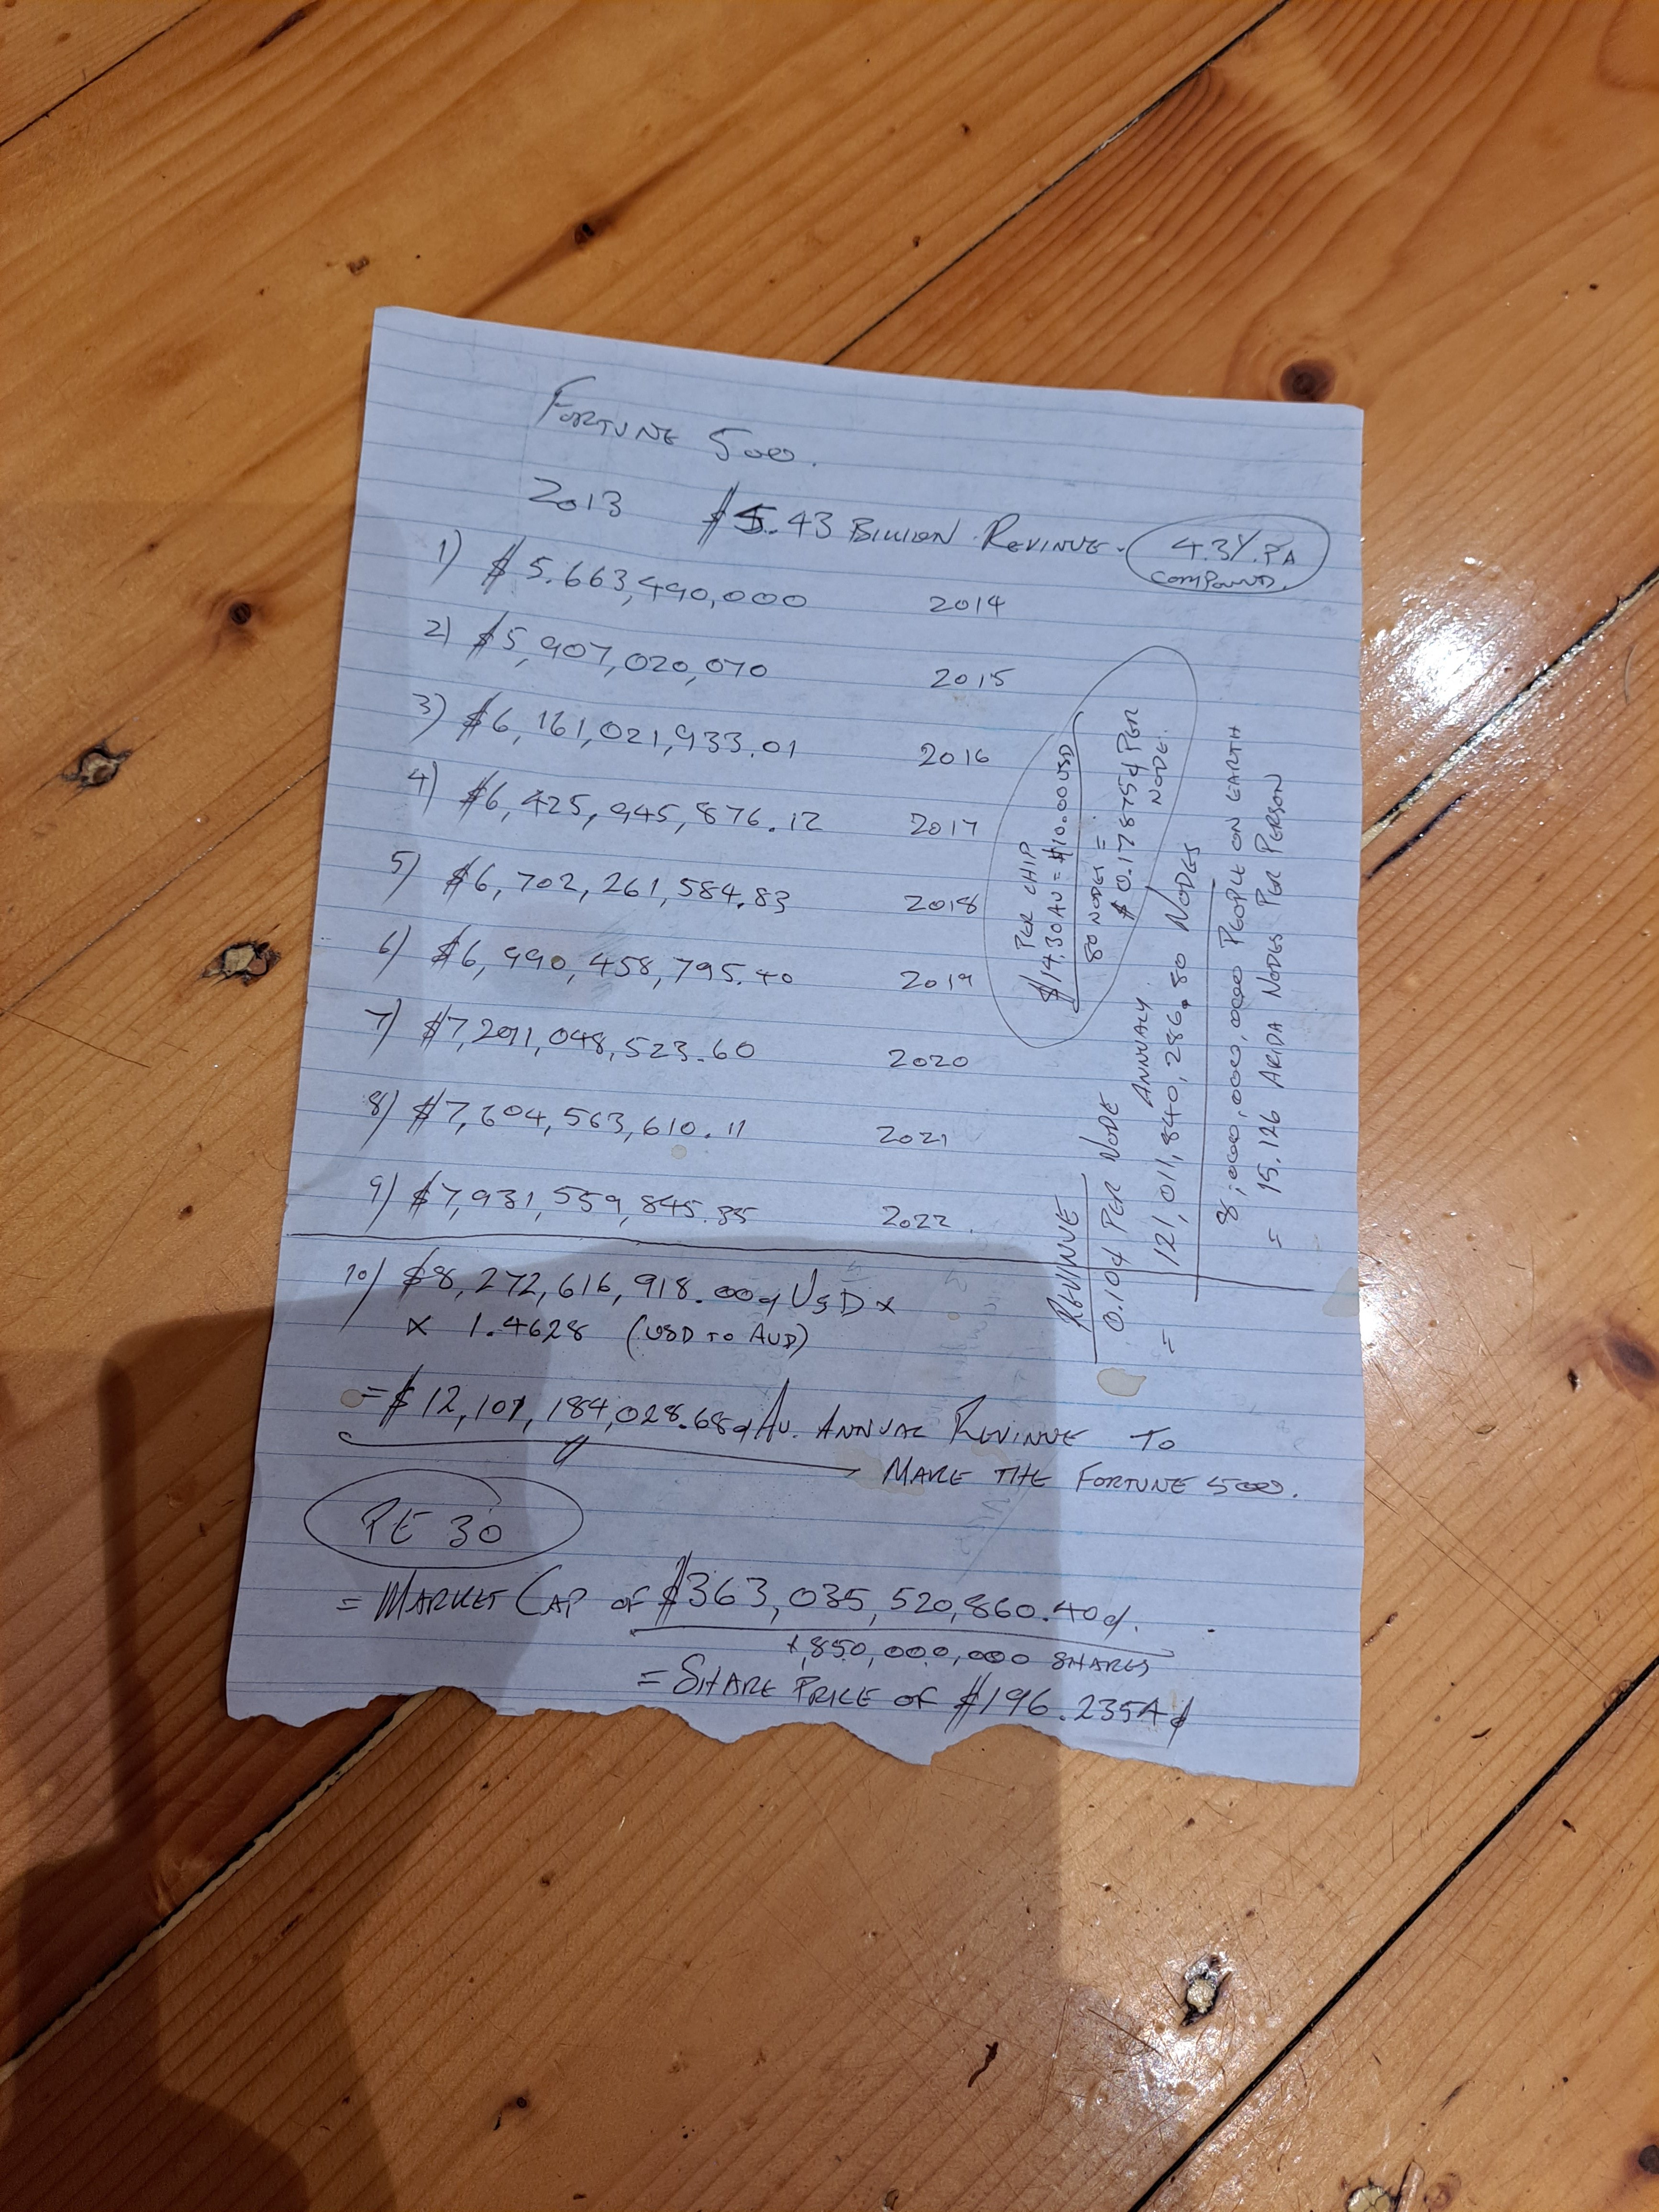 FORTUNE 500.
2013 $5.43 BILLION REVINUE. 4.3%. PA
COMPOUND.
1) $5.663,490,000 2014
2) $5,907,020,070 2015
3) $6,161,021,933.01 2016
4) $6,425,945,876.12 2017
5) $6,702,261,584.83 2018
6) $6,990,458,795.40 2019
7) $7,291,048,523.60 2020
8) $7,604,563,610.11 2021
9) $7,931,559,845.35 2022.
10) $8,272,616,918.00¢ USD x
x 1.4628 (USD TO AUD)
= $12,101,184,028.68¢ AU. ANNUAL REVINUE TO
MAKE THE FORTUNE 500.
PE 30
= MARKET CAP OF $363,035,520,860.40¢.
1,850,000,000 SHARES
= SHARE PRICE OF $196.2354¢
PER CHIP
$14.30 AU = $10.00 USD
80 NODES =
$0.178754 PER
NODE.
REVINUE
0.10¢ PER NODE
ANNUALY.
= 121,011,840,286.80 NODES
8,000,000,000 PEOPLE ON EARTH
= 15.126 AKIDA NODES PER PERSON